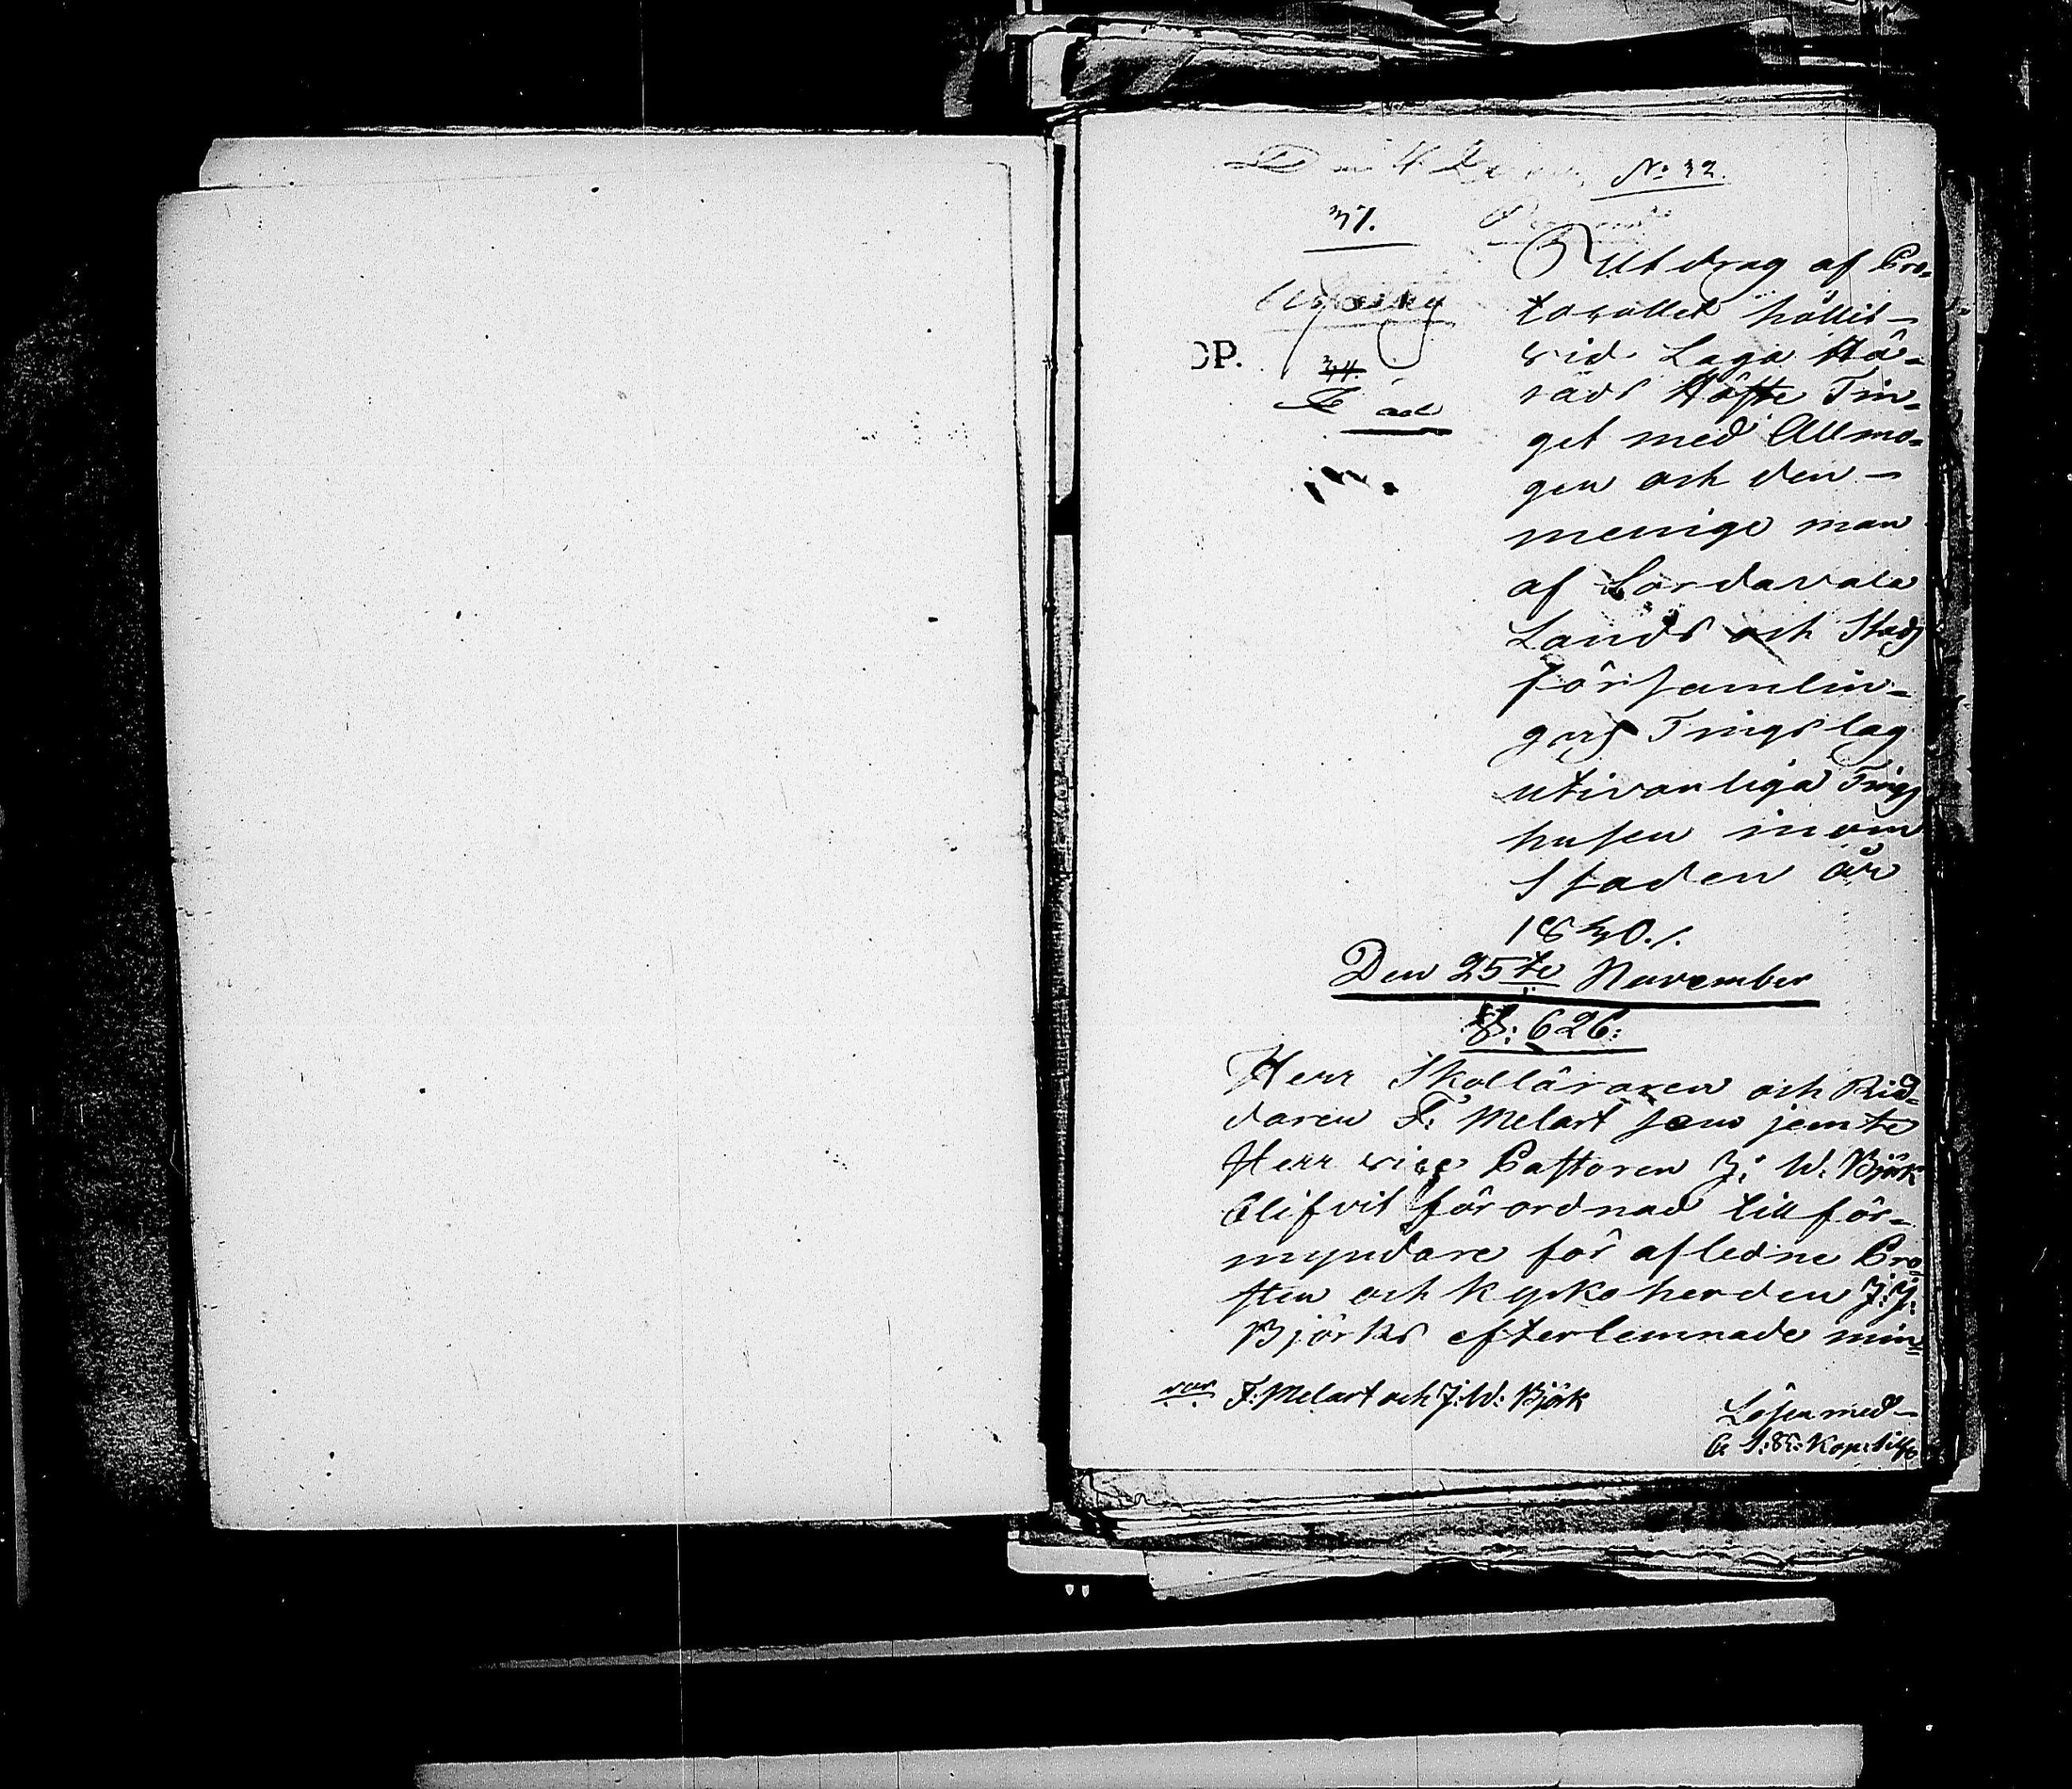 No 32.
37.
Utdrag af Pro-
tocollet hållit
vid Laga Hä-
rads Höste Tin-
get med Allmo-
gen och den
menige man
af Sordavala
Lands och Stads
församlin-
gars Tingslag
uti vanliga Tings
husen inom
Staden år
1840./.
Den 25te November
§: 626:
Herr Skolläraren och Rid-
daren F: Melart som jemte
Herr vice Pastoren J: W: Björk
blifvit förordnad till för-
myndare för afledne Pro-
sten och Kyrkoherden J: J:
Björks efterlemnade min-
OP.
34.
ad
F: Melart och J: W: Björk
Lösen med
Kop: Silfv